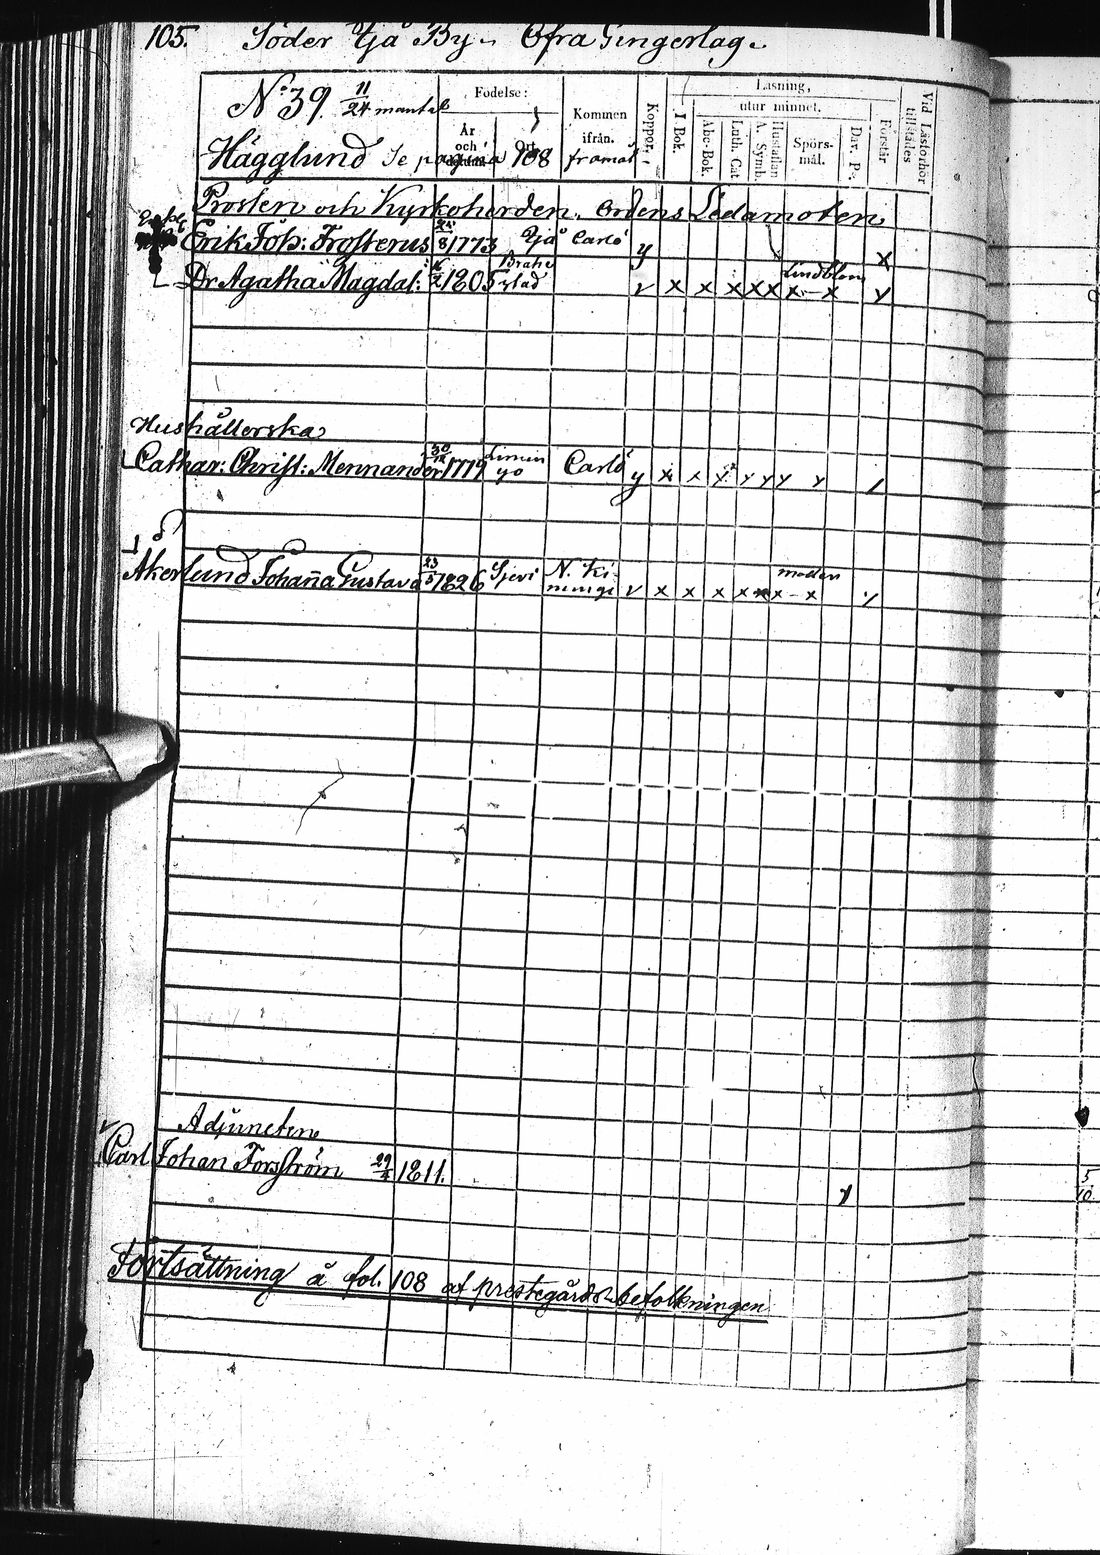 105. Söder Yjå By. Öfra Fingerlag.
No 39 11/24 mantal
Födelse:
År och
Ort.
Kommen ifrån.
Koppor.
Läsning,
I Bok.
utur minnet.
Abc-Bok.
Luth. Cat.
A. Symb.
Hustaflan
Spörs-mål.
Dav. Ps.
Förstår
Vid Läsförhör tillstädes
Hägglund Se pagina 108 framåt
Prosten och Kyrkoherden, Ordens Ledamoten
Erik Joh: Frosterus 24/8 1773 Yjå Carlö y x
Dr Agatha Magdal: 1805 Brahestad v x x x x x x - x y Lindblom
Hushållerska
Cathar: Christ: Mennander 30/12 1779 Limingo Carlö y x x y y y y y
Åkerlund Johanna Gustava 23/5 1826 Sjevi N. Kiminge v x x x x x x - x y
Adjuncten
Carl Johan Forsström 29/4 1811. y
Fortsättning å fol. 108 af prestegårdsbefolkningen
5/10